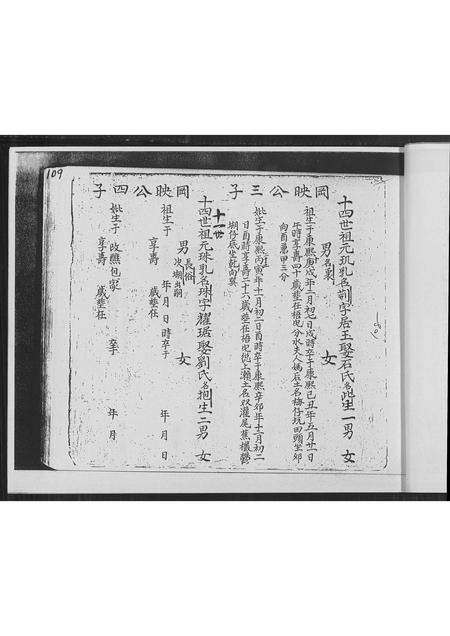 109
岡映公三子
十四世祖元玑乳名荊字居玉娶石氏名妣生一男 女
男名栗
祖生于康熙庚戌年二月初七日戌時卒于康熙己丑年五月廿一日
午時享壽四十歲葬在梧 分水夫人媽后土名梅仔坑田頭坐卯
向酉兼甲三分
妣生于康熙丙寅年十一月初二日酉時卒于康熙辛卯年十二月初二
日酉時享壽二十六歲葬在梧 上瀨土名双灌尾蕉
湖仔底坐乾向巽
岡映公四子
十一世
十四世祖元珠乳名珠字耀琚娶劉氏名抱生二男 女
男 長俗 次姻出嗣 女
祖生于 年 月 日 時卒于 年 月 日
享壽 歲葬在
妣生于 改醮包家 卒于 年 月
享壽 歲葬在 年 月